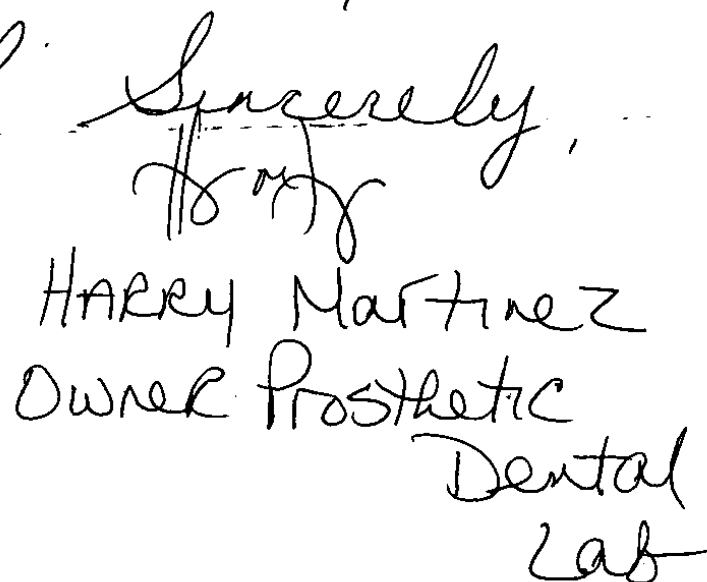 Sincerely,
HARRY Martinez
Owner Prosthetic
Dental
Lab